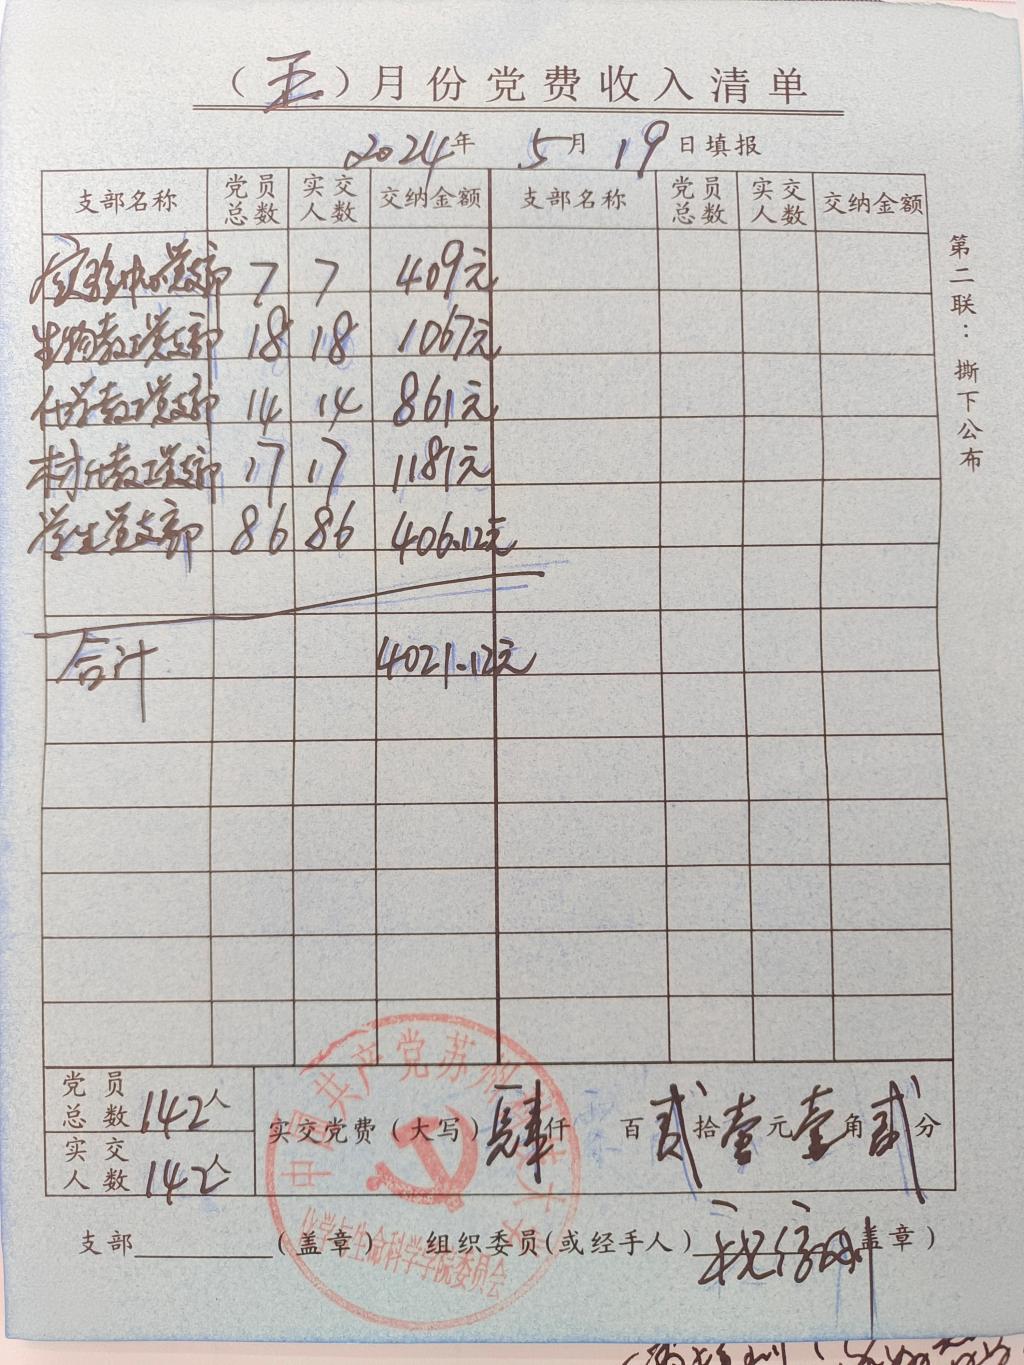 （五）月份党费收入清单
2024年 5月 19日填报
支部名称 党员总数 实交人数 交纳金额 支部名称 党员总数 实交人数 交纳金额
实验中心党支部 7 7 409元
生物教工党支部 18 18 1067元
化学教工党支部 14 14 861元
材化教工党支部 17 17 1181元
学生党支部 86 86 406.12元
合计 4021.12元
第二联：撕下公布
党员总数 142人
实交人数 142人
实交党费（大写）肆仟 百贰拾壹元壹角贰分
中国共产党苏州科技大学
化学与生命科学学院委员会
支部（盖章） 组织委员(或经手人) 盖章）